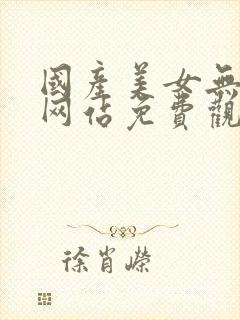 國產美女無
网佔免費觀
徐肖嶸